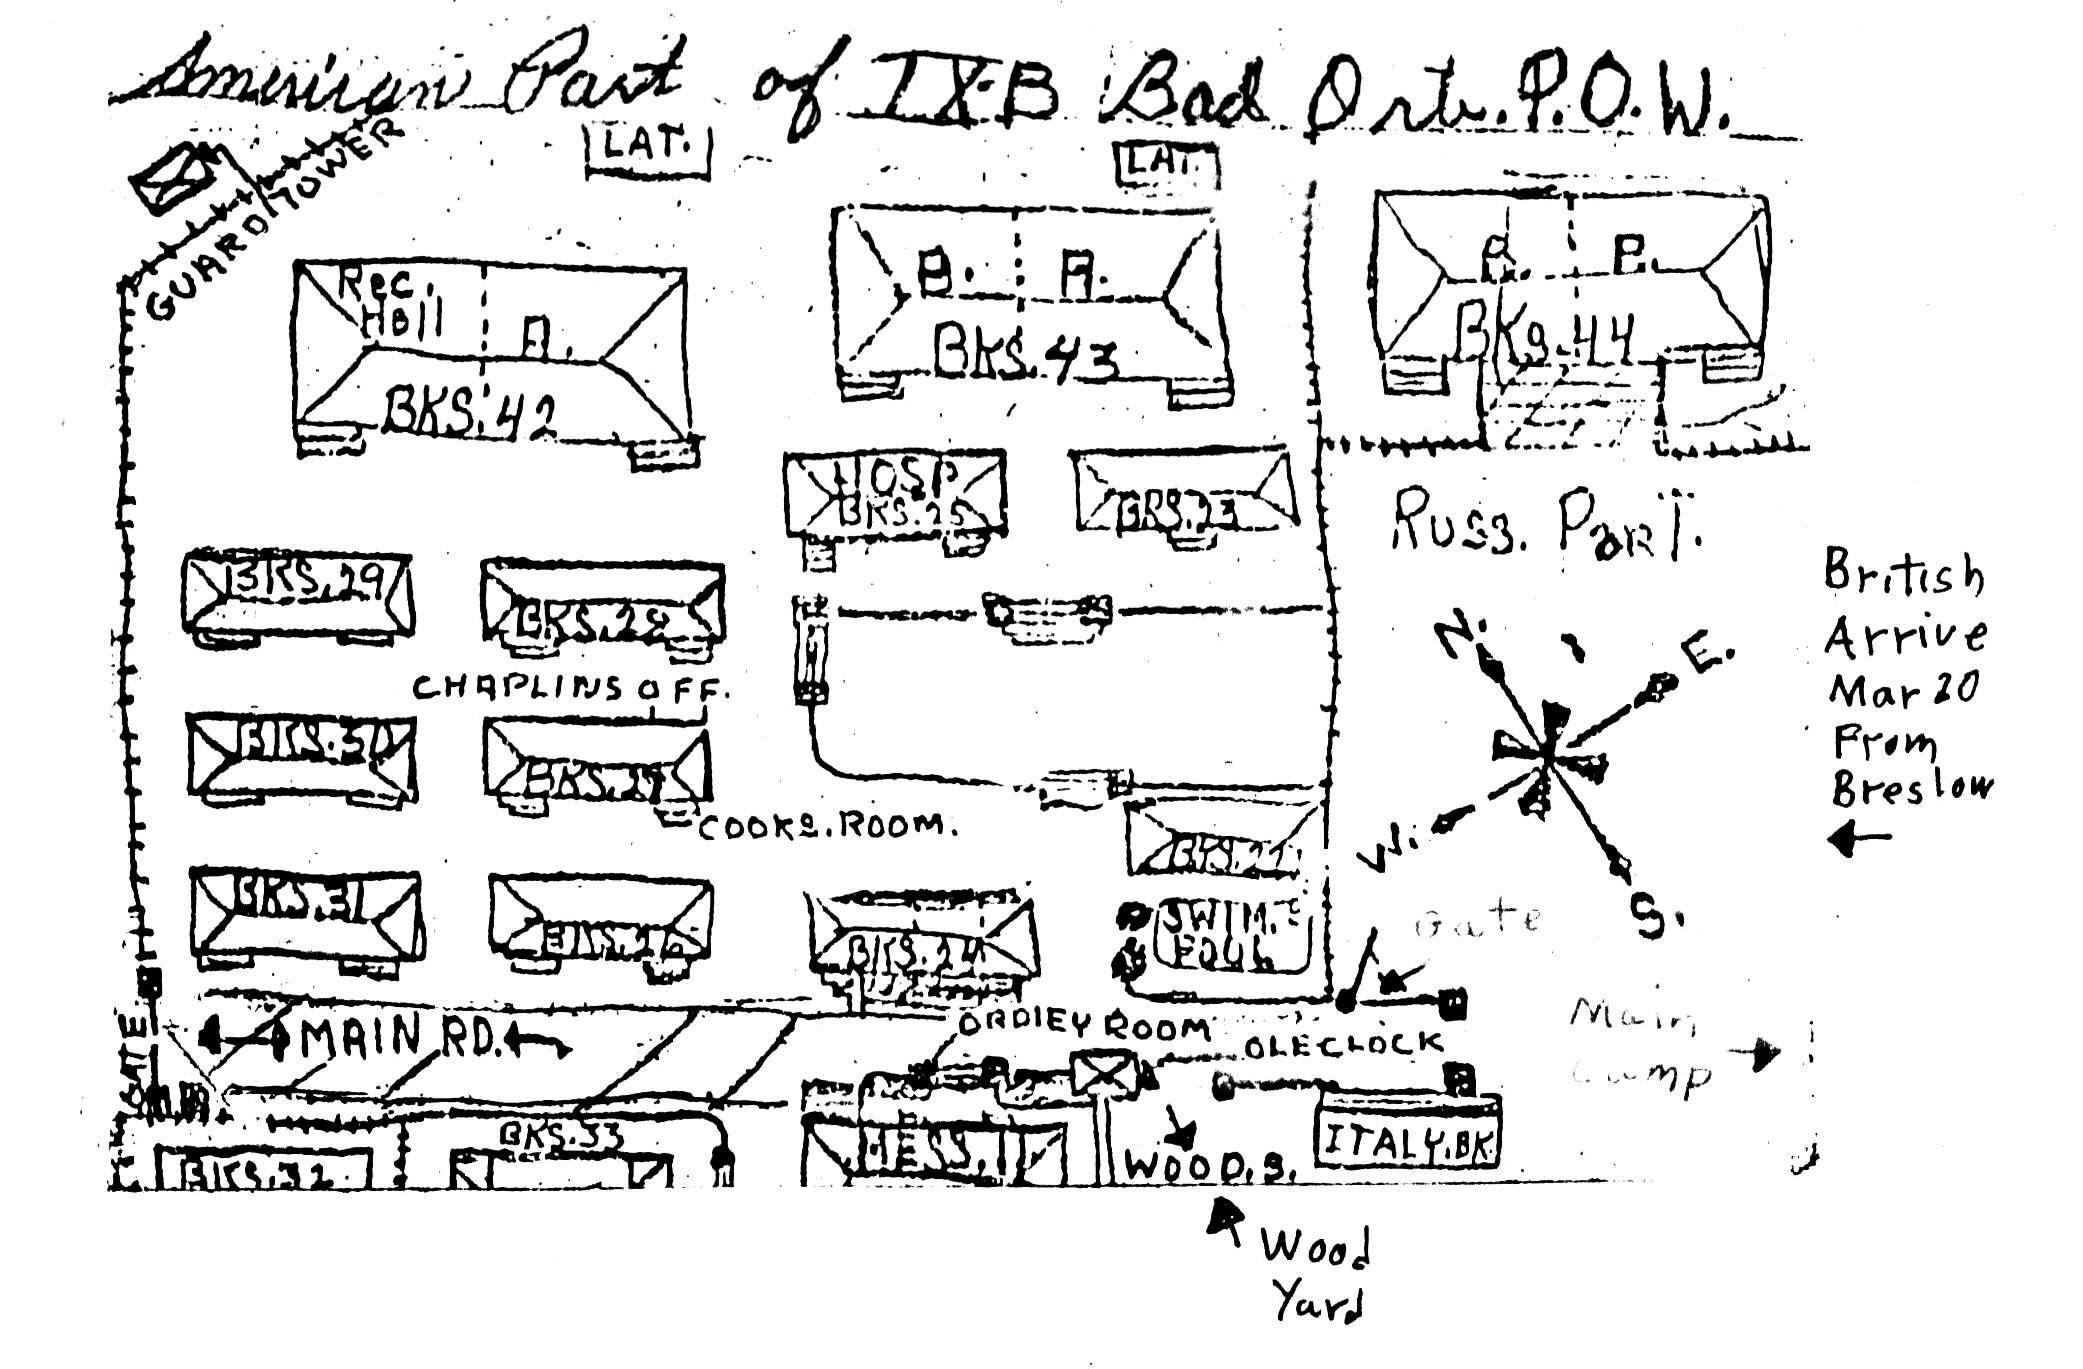 American Part of IX-B Bad Orb. P.O.W.
LAT.
LAT.
GUARD TOWER
Rec.
Hall
A.
BKS. 42
B. A.
BKS. 43
B.
BKS. 44
HOSP
BKS. 25
BKS. 23
Russ. Part.
BKS. 29
BKS. 28
British
Arrive
Mar 20
From
Breslow
N.
E.
W.
S.
CHAPLINS OFF.
BKS. 30
BKS. 27
COOKS. ROOM.
BKS. 22
BKS. 31
BKS. 26
BKS. 24
SWIM.
POOL
Gate
GATE
MAIN RD.
ORDLEY ROOM
OLE CLOCK
Main
Camp
BKS. 32
BKS. 33
MESS.
WOOD. S.
ITALY. BK
Wood
Yard